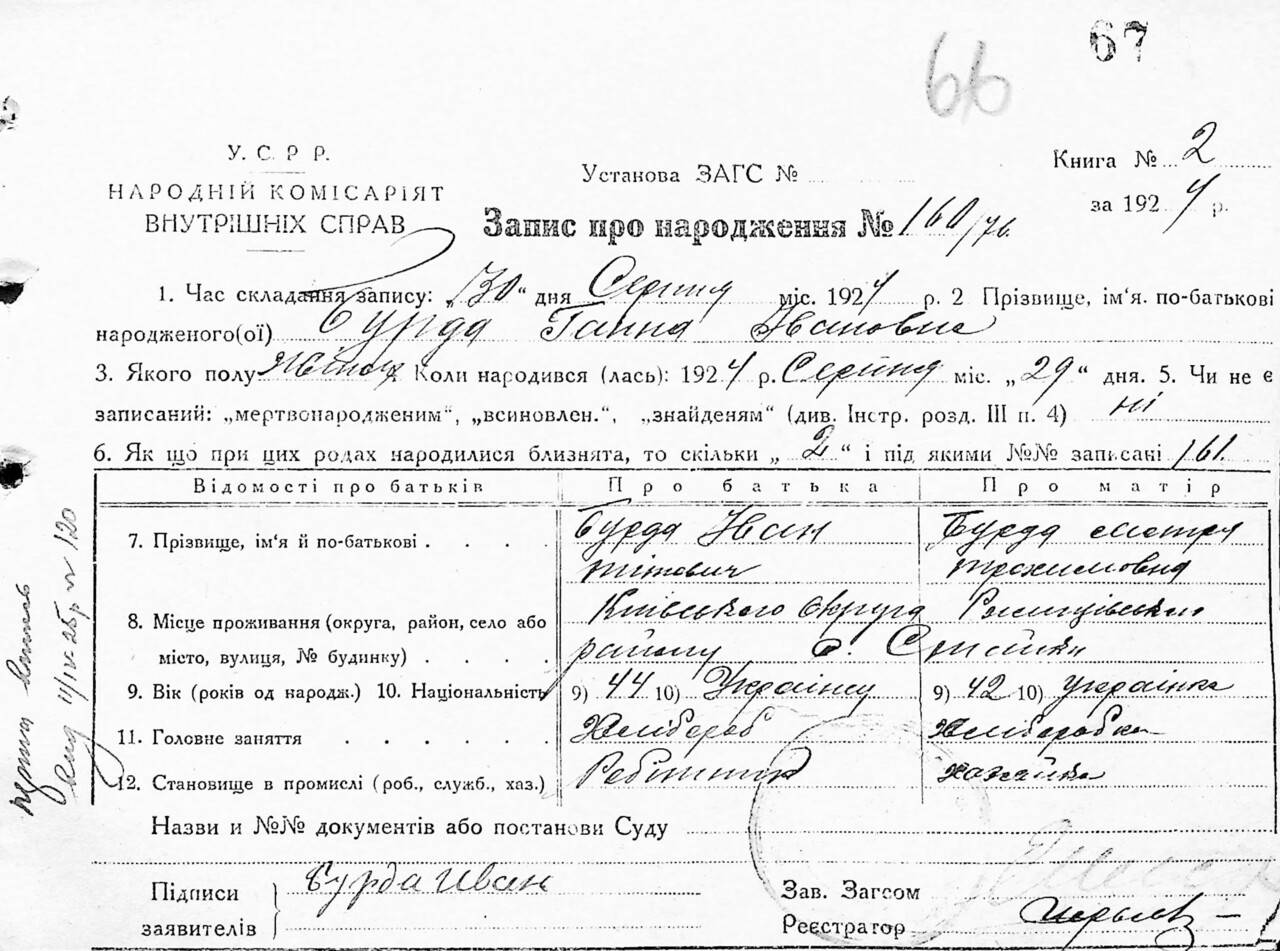 67
66
У. С. Р Р.
НАРОДНІЙ КОМІСАРІЯТ
ВНУТРІШНІХ СПРАВ
Установа ЗАГС №
Книга № 2
за 1924 р.
Запис про народження № 160/76
1. Час складання запису: „30“ дня Серпня міс. 1924 р. 2 Прізвище, ім'я. по-батькові
народженого(ої) Бурда Ганна Ивановна
3. Якого полу Жіноч. Коли народився (лась): 1924 р. Серпня міс. „29“ дня. 5. Чи не є
записаний: „мертвонародженим“, „всиновлен.“, „знайденям“ (див. Інстр. розд. III п. 4) ні
6. Як що при цих родах народилися близнята, то скільки „2“ і під якими №№ записані 161
Відомості про батьків Про батька Про матір
7. Прізвище, ім'я й по-батькові . . . . Бурда Иван Бурда Мотря
Титович Трохимовна
8. Місце проживання (округа, район, село або Київського Округа
місто, вулиця, № будинку) . . . . району с. Стайки
9. Вік (років од народж.) 10. Національність 9) 44 10) Українец 9) 42 10) Українка
11. Головне заняття . . . . . . Хлібороб Хліборобка
12. Становище в промислі (роб., служб., хаз.) Робітник хазяйка
Назви и №№ документів або постанови Суду
Підписи
заявителів
Бурда Иван
Зав. Загсом
Реєстратор
11/IV-25р № 120